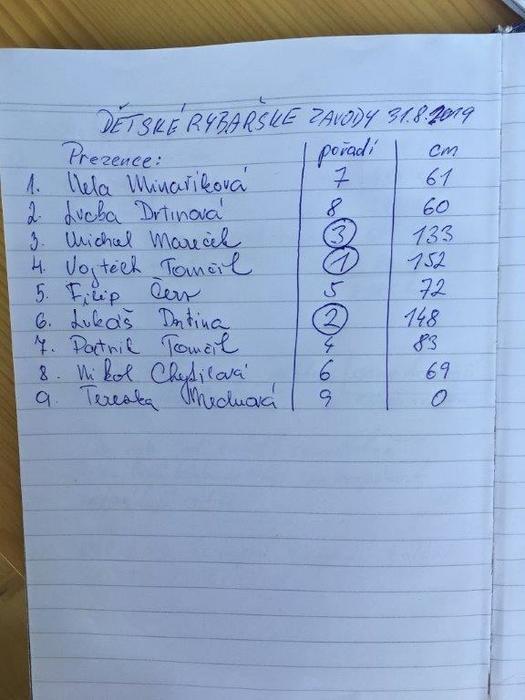 DĚTSKÉ RYBÁŘSKÉ ZÁVODY 31.8.2019
Prezence: pořadí cm
1. Nela Minaříková 7 61
2. Lucka Drtinová 8 60
3. Michal Mareček 3 133
4. Vojtěch Tomčil 1 152
5. Filip Červ 5 72
6. Lukáš Drtina 2 148
7. Patrik Tomčil 4 83
8. Nikol Chytilová 6 69
9. Terezka 9 0